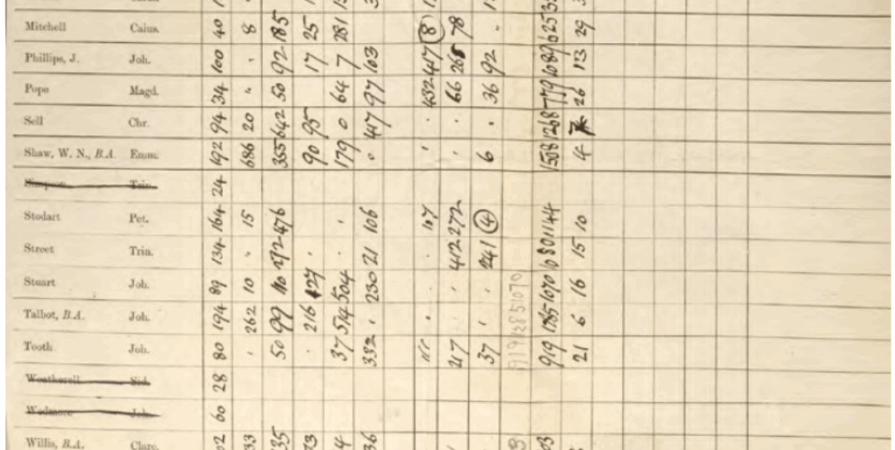 Mitchell Caius. 40 8 185 25 281 (8) 78 625 29
Phillips, J. Joh. 100 92 17 7 103 417 265 92 1089 13
Pope Magd. 34 50 64 97 432 66 36 779 26
Sell Chr. 94 20 642 95 0 417 1268
Shaw, W. N., B.A. Emm. 192 686 355 90 179 0 6 1508 4
Simpson Trin. 24
Stodart Pet. 164 15 476 106 107 272 (4) 1144 10
Street Trin. 134 272 21 412 241 1080 15
Stuart Joh. 89 10 110 127 504 230 1070 16
Talbot, B.A. Joh. 194 262 99 216 514 1285 6
Tooth Joh. 80 50 37 332 217 37 919 1285 1070 919 21
Weatherell Sid. 28
Wedmore Joh. 60
Willis, B.A. Clare.